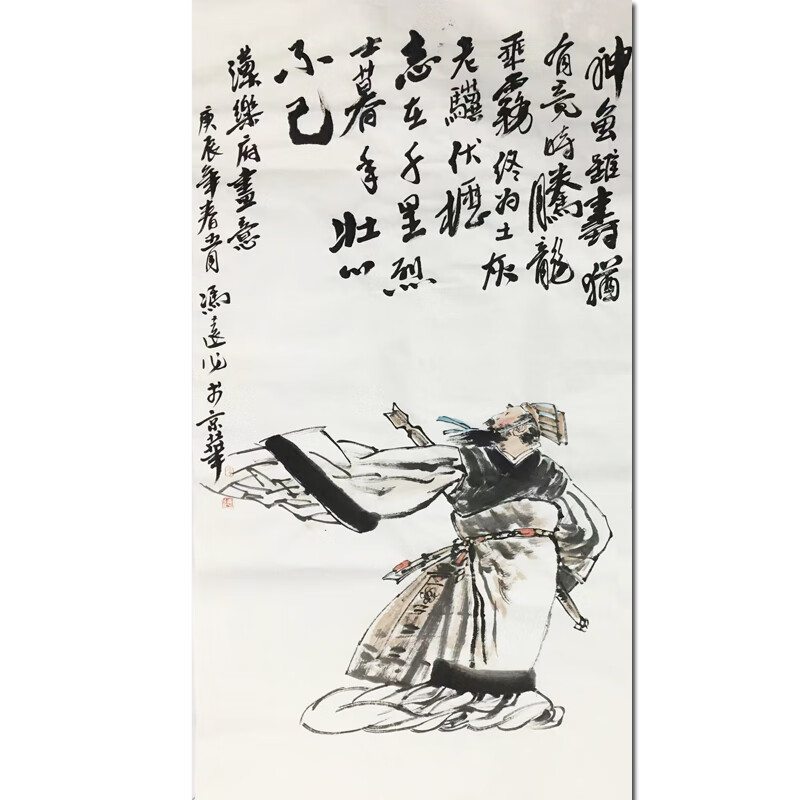 神龟雖壽猶
有竟時騰龍
乘霧終为土灰
老驥伏櫪
志在千里烈
士暮年壯心
不已
漢樂府畫意
庚辰年春五月馮遠作於京華